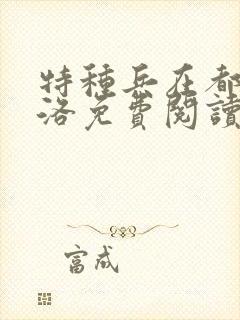 特種兵在都
洛免費閱讀
富成